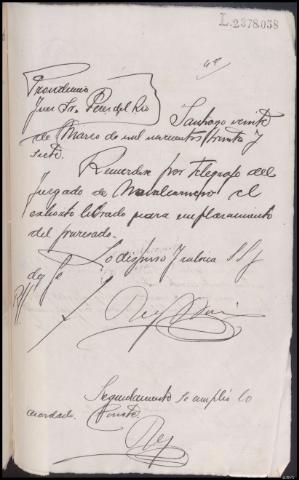 L.2378.038
Providencia
Juez Sr. Pérez del Río
Santiago veinte
de Marzo de mil novecientos treinta y
siete.
Recuérdese por telégrafo del
Juzgado de el
exhorto librado para emplazamiento
del procesado.
Lo dispuso y rubrica SSª
doy fe
Seguidamente se cumplió lo
acordado. Conste.
Rey